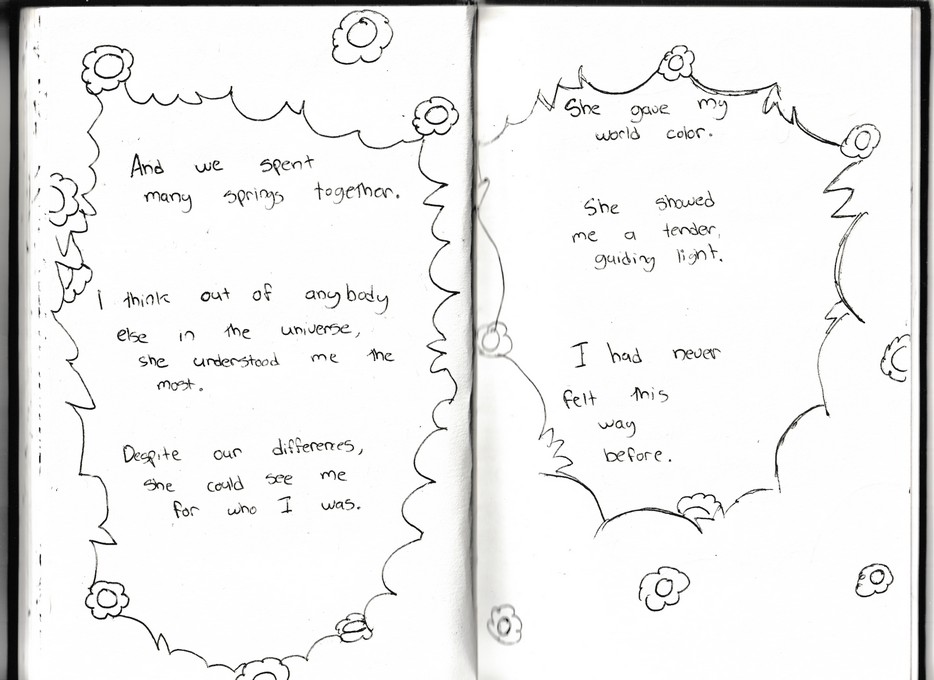 And we spent
many springs together.
I think out of anybody
else in the universe,
she understood me the
most.
Despite our differences,
she could see me
for who I was.
She gave my
world color.
She showed
me a tender,
guiding light.
I had never
felt this
way
before.